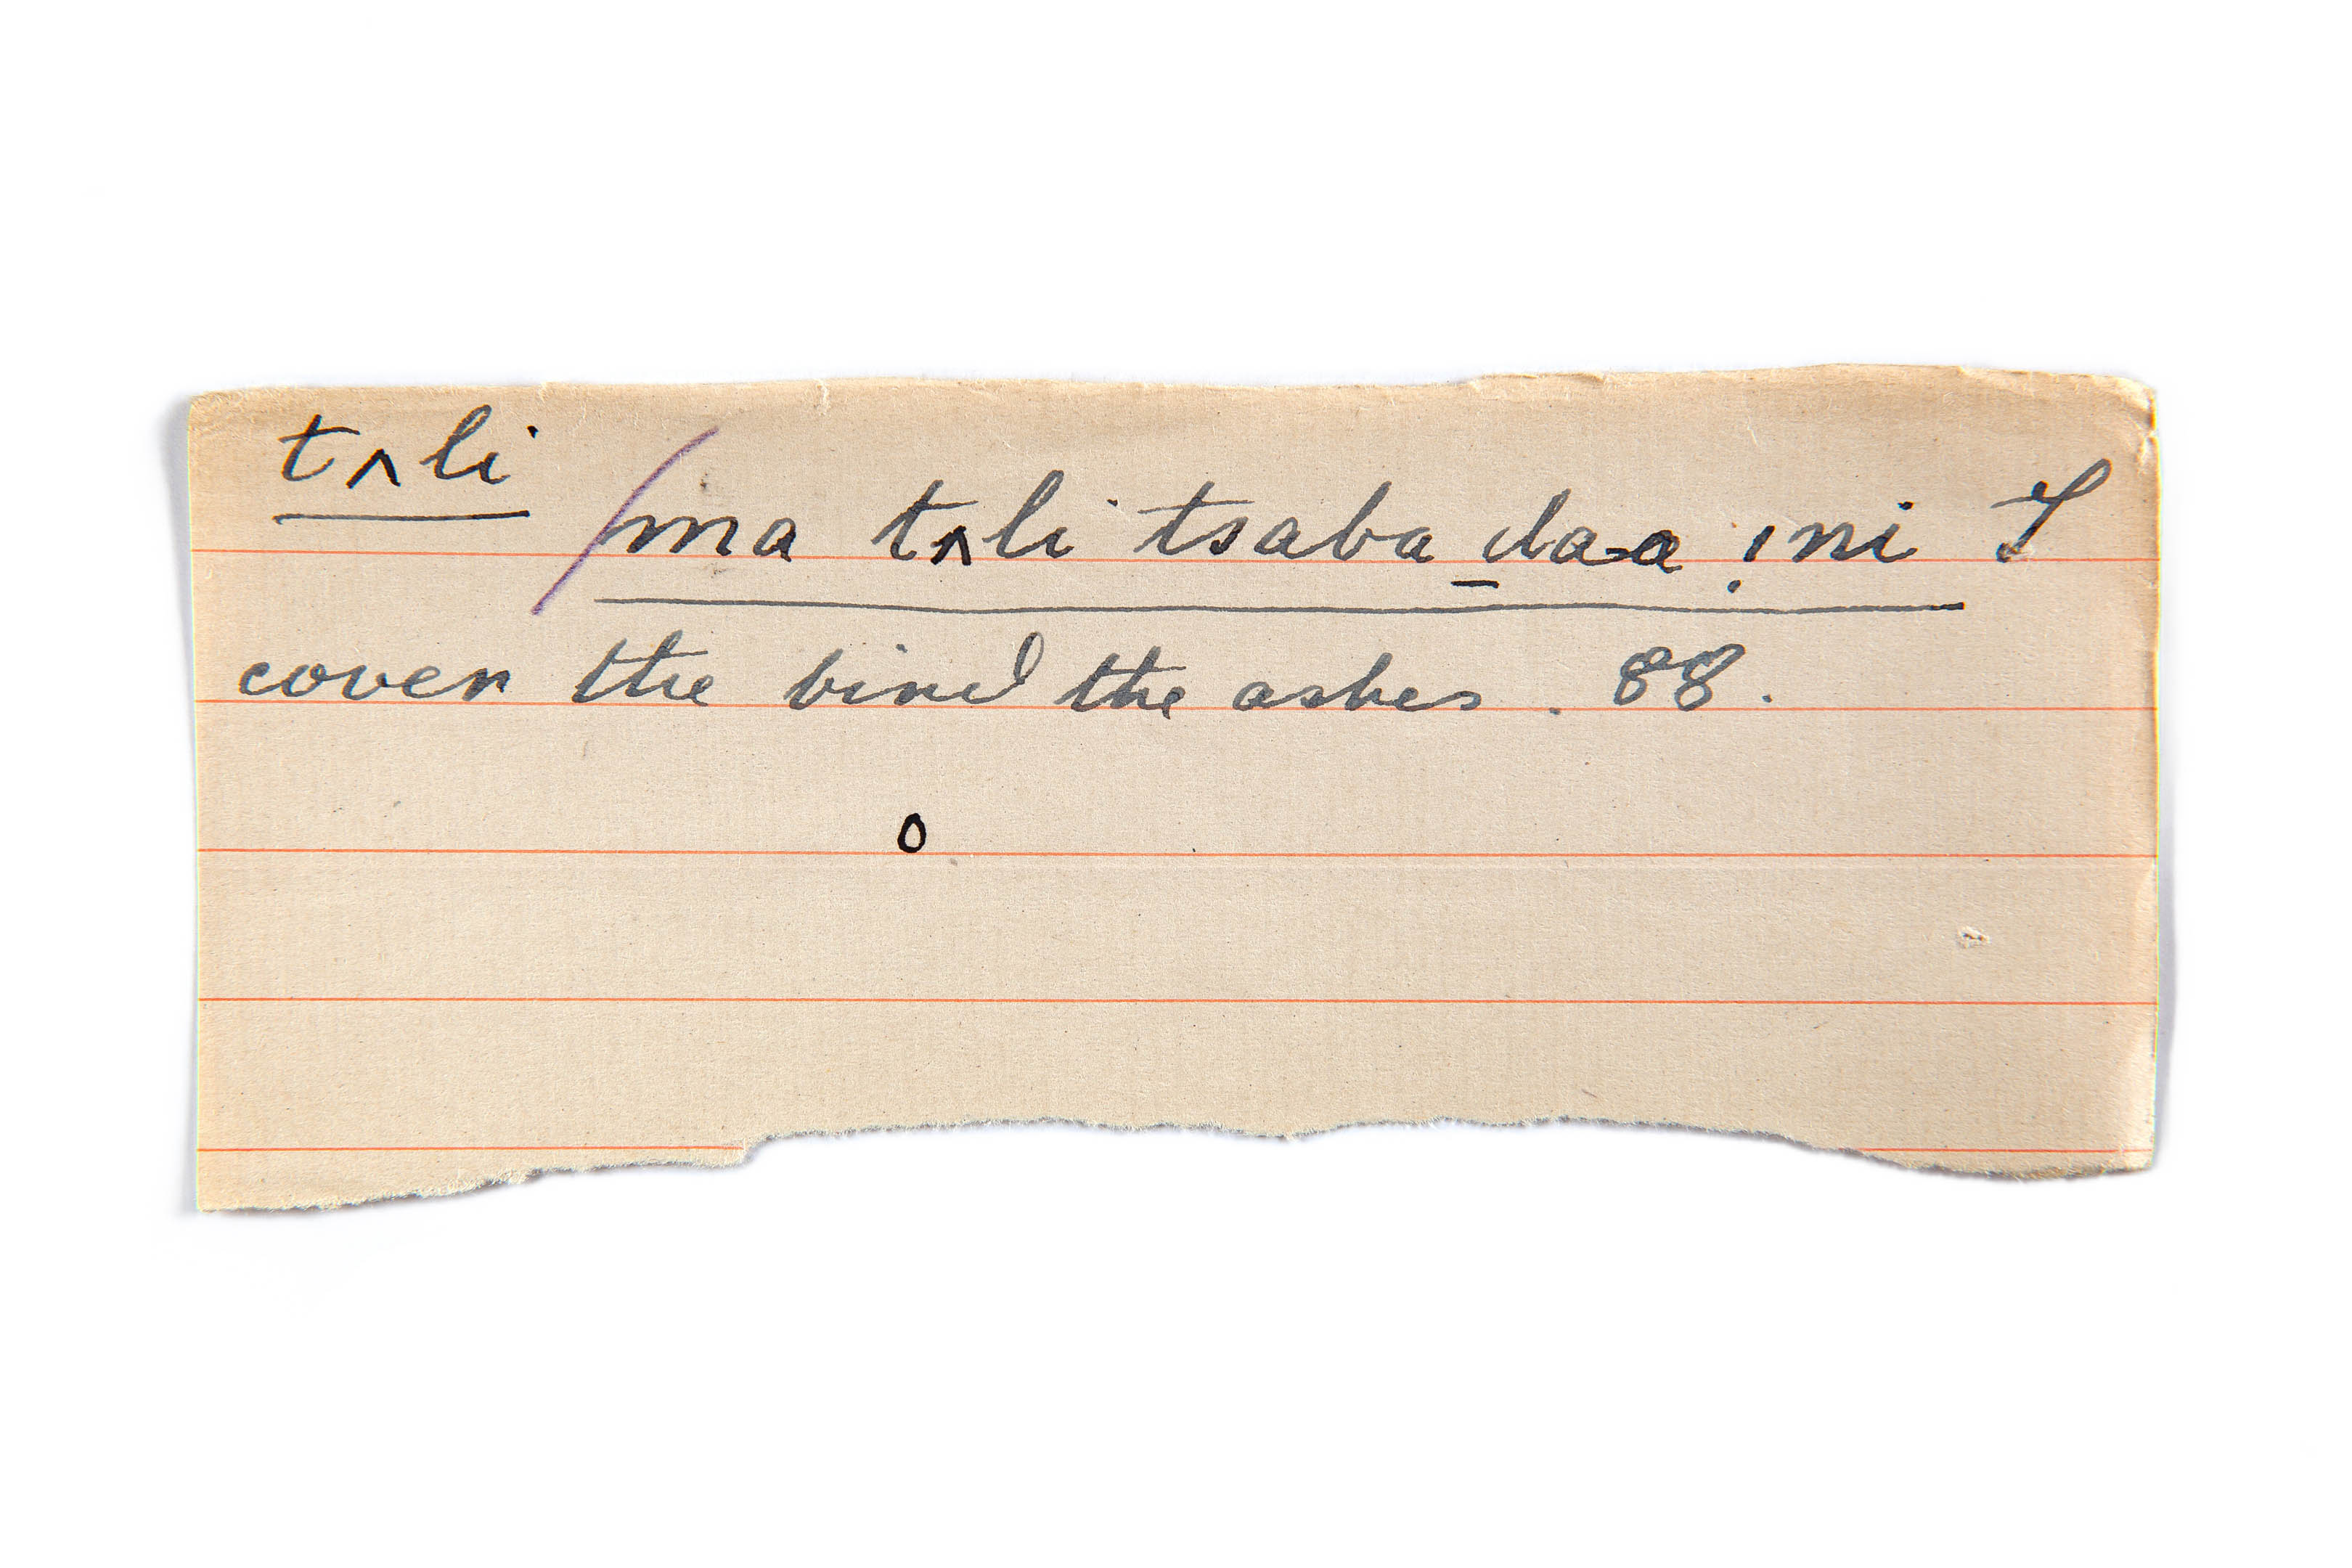 tʌli
/ma tʌli tsaba_daa ! ni I
cover the bird the ashes . 88.
o